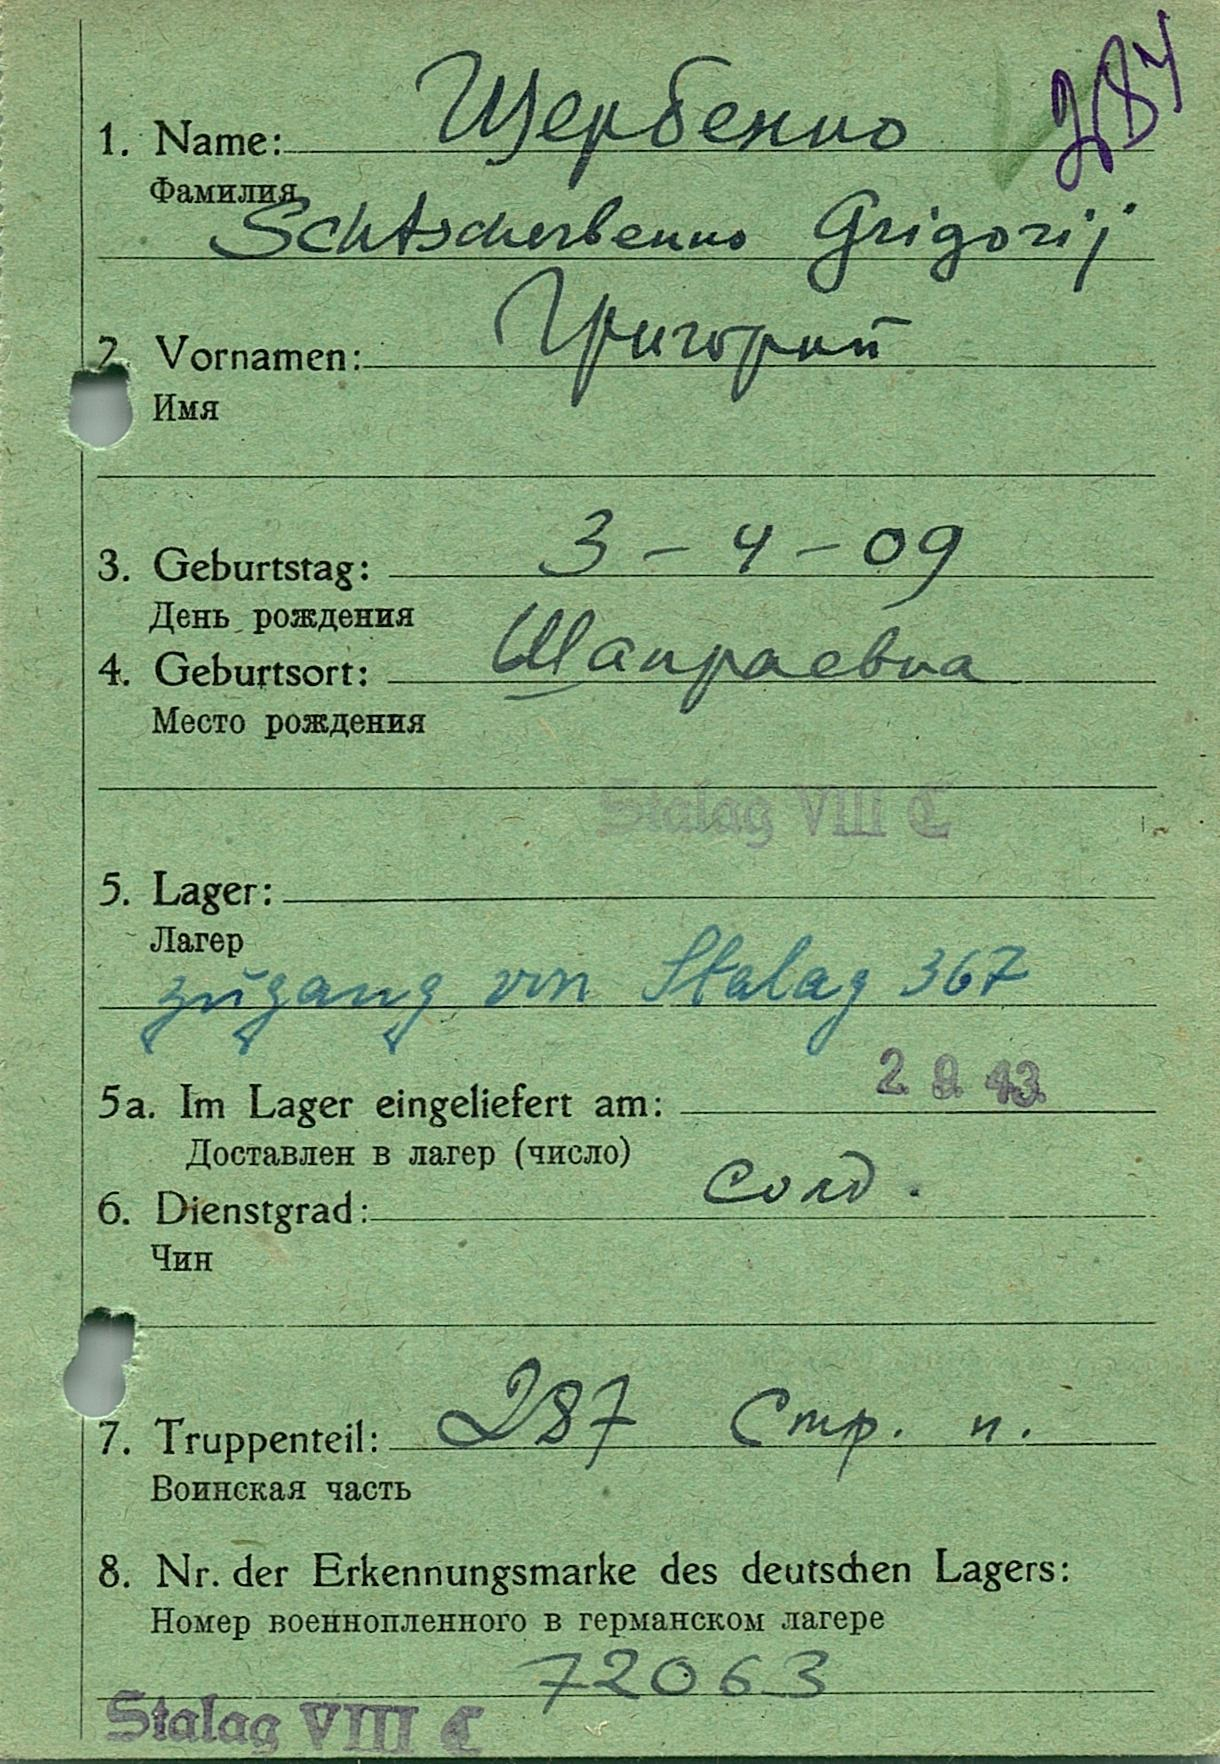 284
1. Name: Щербенко
Фамилия
Schtscherbenko Grigorij
2. Vornamen: Григорий
Имя
3. Geburtstag: 3 - 4 - 09
День рождения
4. Geburtsort: Шапраевка
Место рождения
Stalag VIII C
5. Lager:
Лагер
Zugang von Stalag 367
5a. Im Lager eingeliefert am: 2. 9. 43.
Доставлен в лагер (число)
6. Dienstgrad: солд.
Чин
7. Truppenteil: 287 Стр. п.
Воинская часть
8. Nr. der Erkennungsmarke des deutschen Lagers:
Номер военнопленного в германском лагере
72063
Stalag VIII C